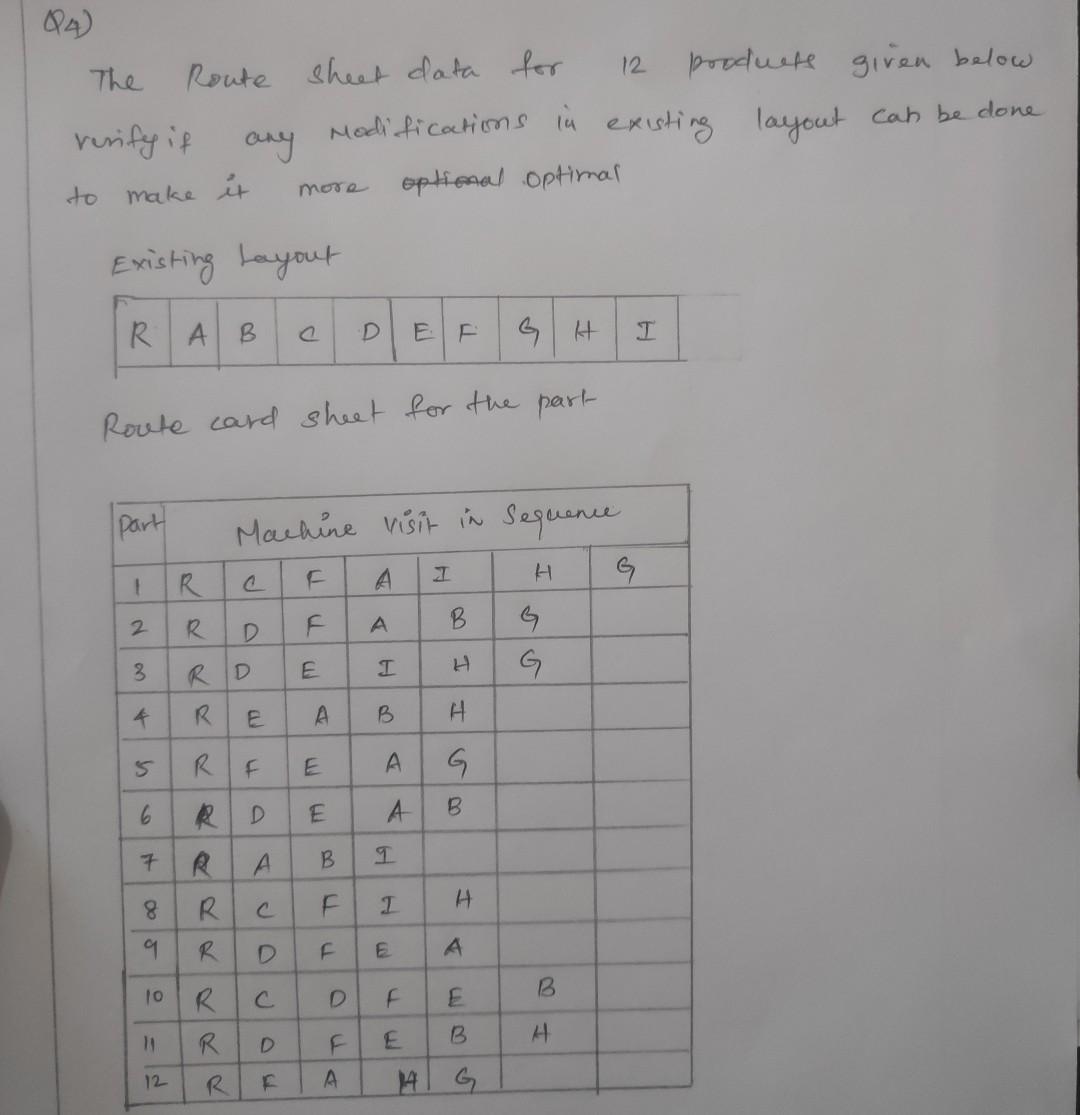 Q4)
The Route sheet data for 12 products given below
verify if any Modifications in existing layout can be done
to make it more optional optimal
Existing Layout
R A B C D E F G H I
Route card sheet for the part
Part Machine visit in Sequence
1 R C F A I H G
2 R D F A B G
3 R D E I H G
4 R E A B H
5 R F E A G
6 R D E A B
7 R A B I
8 R C F I H
9 R D F E A
10 R C D F E B
11 R D F E B H
12 R F A H G